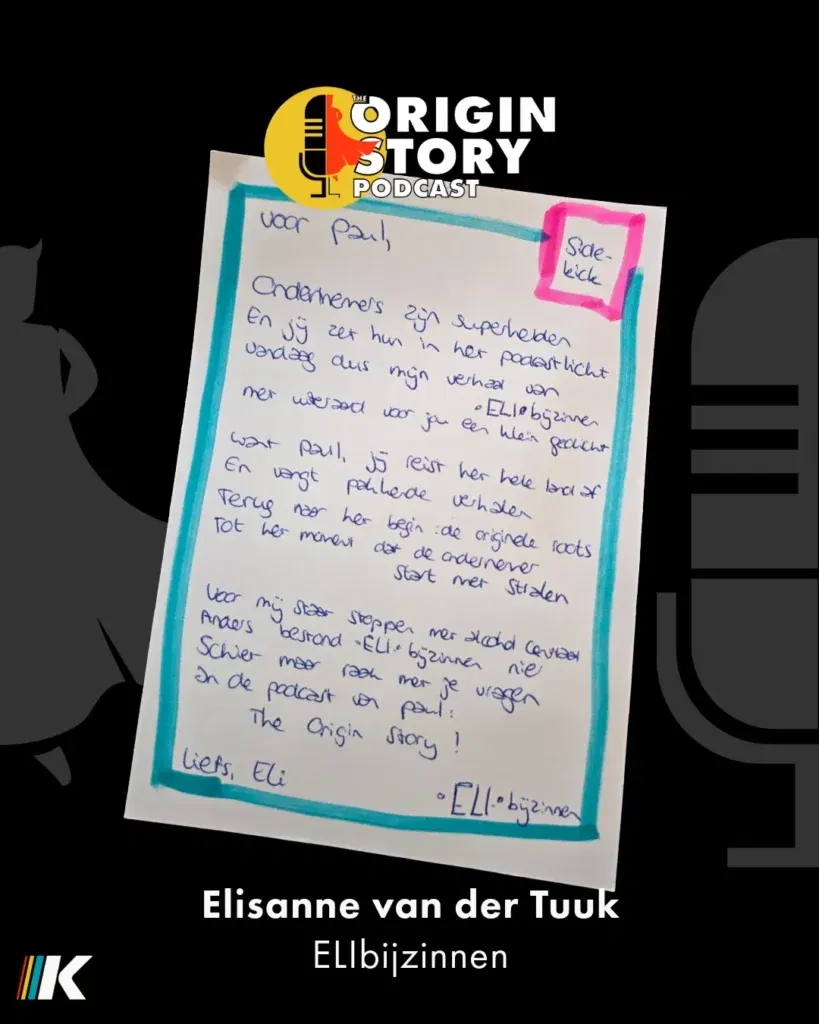 THE
ORIGIN
STORY
PODCAST
voor Paul,
Side-
kick
Ondernemers zijn superhelden
En jij zet hun in het podcastlicht
vandaag dus mijn verhaal van
•ELI•bijzinnen
met uiteraard voor jou een klein gedicht
want Paul, jij reist het hele land af
En vangt pakkende verhalen
Terug naar het begin: de originele roots
Tot het moment dat de ondernemer
start met stralen
Voor mij staat stoppen met alcohol centraal
Anders bestond •ELI• bijzinnen niet
Schiet maar raak met je vragen
In de podcast van Paul:
The Origin Story!
Liefs, Eli
•ELI•bijzinnen
Elisanne van der Tuuk
ELIbijzinnen
K